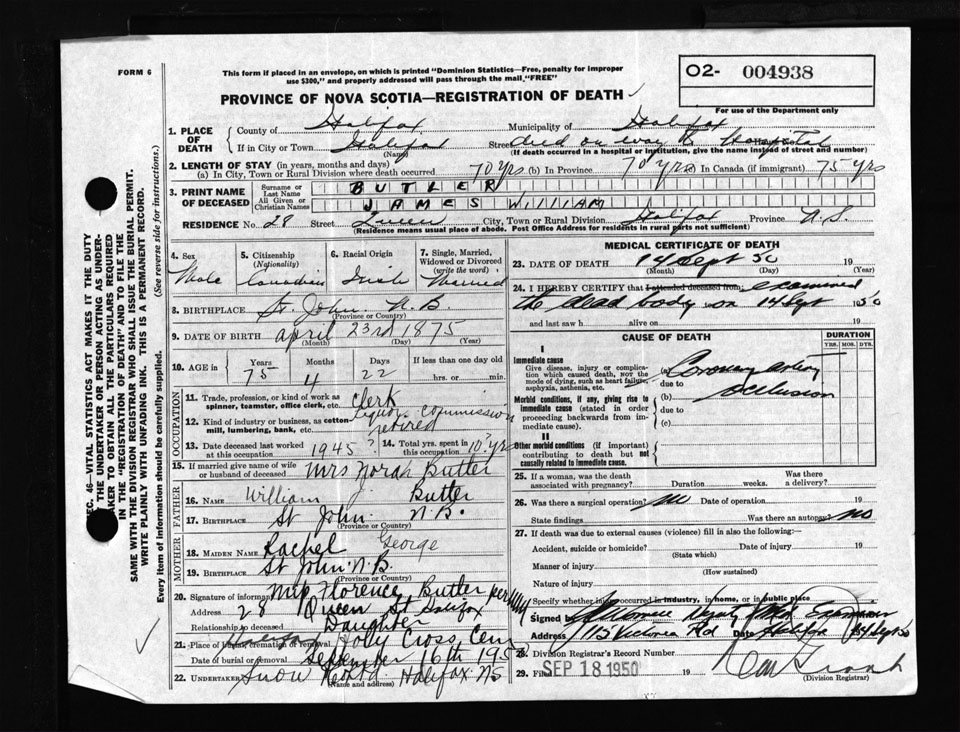 FORM 6
This form if placed in an envelope, on which is printed "Dominion Statistics—Free, penalty for improper
use $300," and properly addressed will pass through the mail "FREE"
O2- 004938
PROVINCE OF NOVA SCOTIA—REGISTRATION OF DEATH
For use of the Department only
1. PLACE OF DEATH
County of Halifax Municipality of Halifax
If in City or Town Halifax Street died on way to hospital
(Name) (If death occurred in a hospital or institution, give the name instead of street and number)
2. LENGTH OF STAY (in years, months and days)
(a) In City, Town or Rural Division where death occurred 70 yrs (b) In Province 70 yrs (c) In Canada (if immigrant) 75 yrs
3. PRINT NAME OF DECEASED
Surname or Last Name BUTLER
All Given or Christian Names JAMES WILLIAM
RESIDENCE No. 28 Street Queen City, Town or Rural Division Halifax Province N.S.
(Residence means usual place of abode. Post Office Address for residents in rural parts not sufficient)
4. Sex
Male
5. Citizenship (Nationality)
Canadian
6. Racial Origin
Irish
7. Single, Married, Widowed or Divorced (write the word)
Married
8. BIRTHPLACE St. John N.B.
(Province or Country)
9. DATE OF BIRTH april 23rd 1875
(Month) (Day) (Year)
10. AGE in
Years Months Days If less than one day old
75 4 22 hrs. or min.
OCCUPATION
11. Trade, profession, or kind of work as
spinner, teamster, office clerk, etc. Clerk
12. Kind of industry or business, as cotton-
mill, lumbering, bank, etc. Liquor commission
retired
13. Date deceased last worked at this occupation 1945?
14. Total yrs. spent in this occupation 10? yrs
15. If married give name of wife
or husband of deceased Mrs Norah Butler
FATHER
16. NAME William J. Butler
17. BIRTHPLACE St John N.B.
(Province or Country)
MOTHER
18. MAIDEN NAME Rachel George
19. BIRTHPLACE St John N.B.
(Province or Country)
20. Signature of informant Florence Butler per
Address 28 Queen St Halifax
Relationship to deceased Daughter
21. Place of burial, cremation or removal Halifax Holy Cross Cem
Date of burial or removal September 16th 1950
22. UNDERTAKER Snow Halifax NS
(Name and address)
MEDICAL CERTIFICATE OF DEATH
23. DATE OF DEATH 14 Sept 50 19
(Month) (Day) (Year)
24. I HEREBY CERTIFY that I attended deceased from examined
the dead body on 14 Sept 1950
and last saw h alive on 19
CAUSE OF DEATH
DURATION
YRS. MOS. DYS.
I
Immediate cause
Give disease, injury or complica-
tion which caused death, not the
mode of dying, such as heart failure,
asphyxia, asthenia, etc.
(a) Coronary artery
due to
(b) occlusion
Morbid conditions, if any, giving rise to
immediate cause (stated in order
proceeding backwards from im-
mediate cause).
due to
(c)
II
Other morbid conditions (if important)
contributing to death but not
causally related to immediate cause.
25. If a woman, was the death
associated with pregnancy? Duration weeks.
Was there
a delivery?
26. Was there a surgical operation? No Date of operation 19
State findings Was there an autopsy? no
27. If death was due to external causes (violence) fill in also the following:—
Accident, suicide or homicide? Date of injury 19
(State which)
Manner of injury
(How sustained)
Nature of injury
Specify whether injury occurred in industry, in home, or in public place
Signed by Deputy Med Examiner
Address 115 Victoria Rd Date Halifax 14 Sept 50
28. Division Registrar's Record Number
29. Filed SEP 18 1950 19
(Division Registrar)
SEC. 46—VITAL STATISTICS ACT MAKES IT THE DUTY
OF THE UNDERTAKER OR PERSON ACTING AS UNDER-
TAKER TO OBTAIN ALL THE PARTICULARS REQUIRED
IN THE "REGISTRATION OF DEATH" AND TO FILE THE
SAME WITH THE DIVISION REGISTRAR WHO SHALL ISSUE THE BURIAL PERMIT.
WRITE PLAINLY WITH UNFADING INK. THIS IS A PERMANENT RECORD.
Every item of information should be carefully supplied. (See reverse side for instructions.)